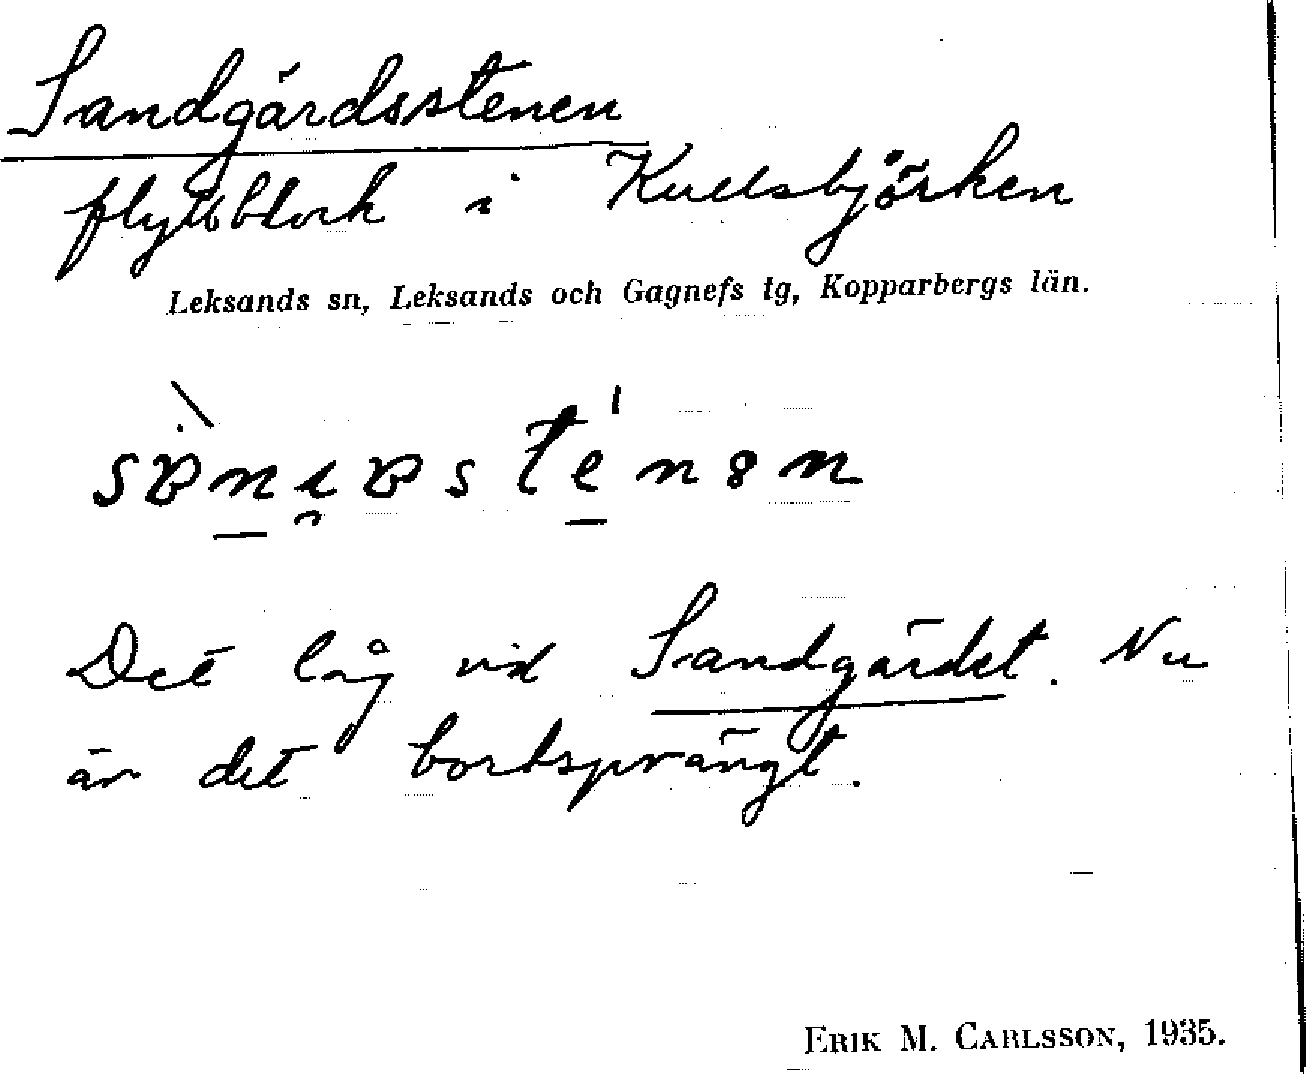 Sandgärdsstenen
flyttblock i Kullsbjörken
Leksands sn, Leksands och Gagnefs tg, Kopparbergs län.
Det låg vid Sandgärdet. Nu
är det bortsprängt.
ERIK M. CARLSSON, 1935.